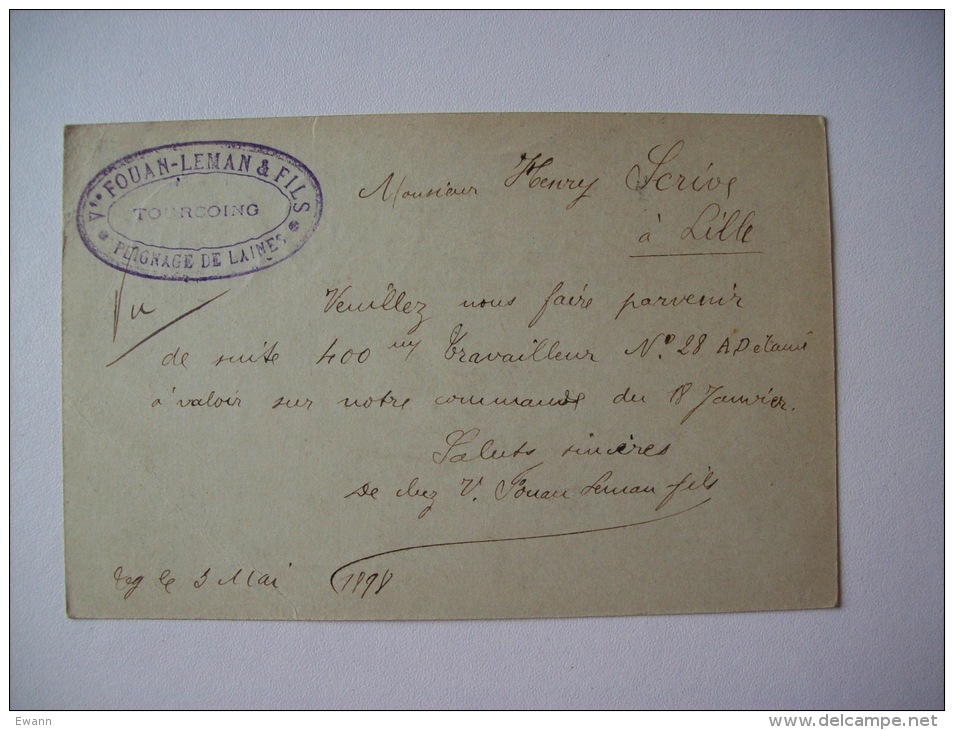 Vve FOUAN-LEMAN & FILS
TOURCOING
PEIGNAGE DE LAINES
Monsieur Henry Scrive
à Lille
Vu
Veuillez nous faire parvenir
de suite 400 m/ Travailleur No. 28
à valoir sur notre commande du 18 Janvier.
Saluts sincères
De chez V. Fouan Leman fils
Tcg le 3 Mai 1898
Ewann
www.delcampe.net